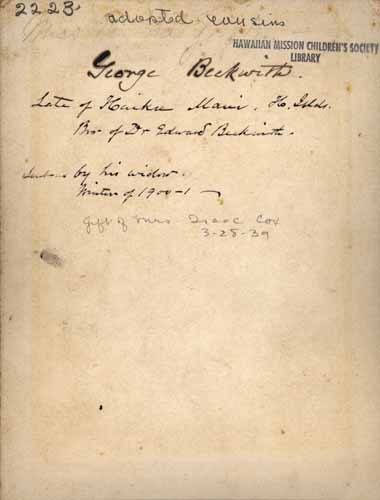 2223
adopted cousins
HAWAIIAN MISSION CHILDREN'S SOCIETY
LIBRARY
George Beckwith.
Late of Haiku Maui. H. Islds.
Bro. of Dr Edward Beckwith.
by his widow.
Winter of 1900-1
gift of Mrs Isaac Cox
3-28-39